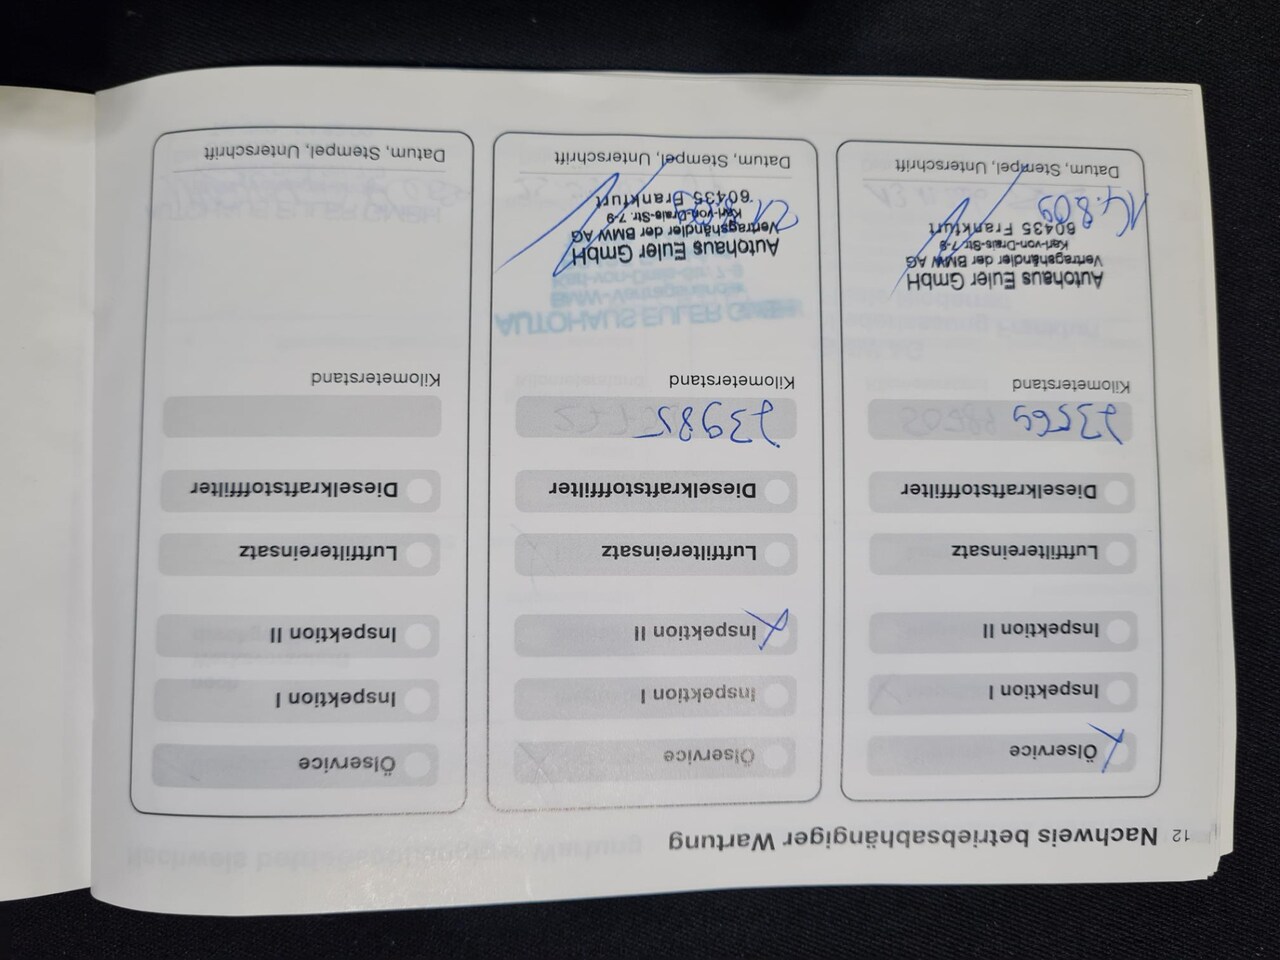 12 Nachweis betriebsabhängiger Wartung
Ölservice
Inspektion I
Inspektion II
Luftfiltereinsatz
Dieselkraftstofffilter
23569
Kilometerstand
Autohaus Euler GmbH
Vertragshändler der BMW AG
Karl-von-Drais-Str. 7-9
60435 Frankfurt
14.8.09
Datum, Stempel, Unterschrift
Ölservice
Inspektion I
Inspektion II
Luftfiltereinsatz
Dieselkraftstofffilter
23985
Kilometerstand
Autohaus Euler GmbH
Vertragshändler der BMW AG
Karl-von-Drais-Str. 7-9
60435 Frankfurt
Datum, Stempel, Unterschrift
Ölservice
Inspektion I
Inspektion II
Luftfiltereinsatz
Dieselkraftstofffilter
Kilometerstand
Datum, Stempel, Unterschrift